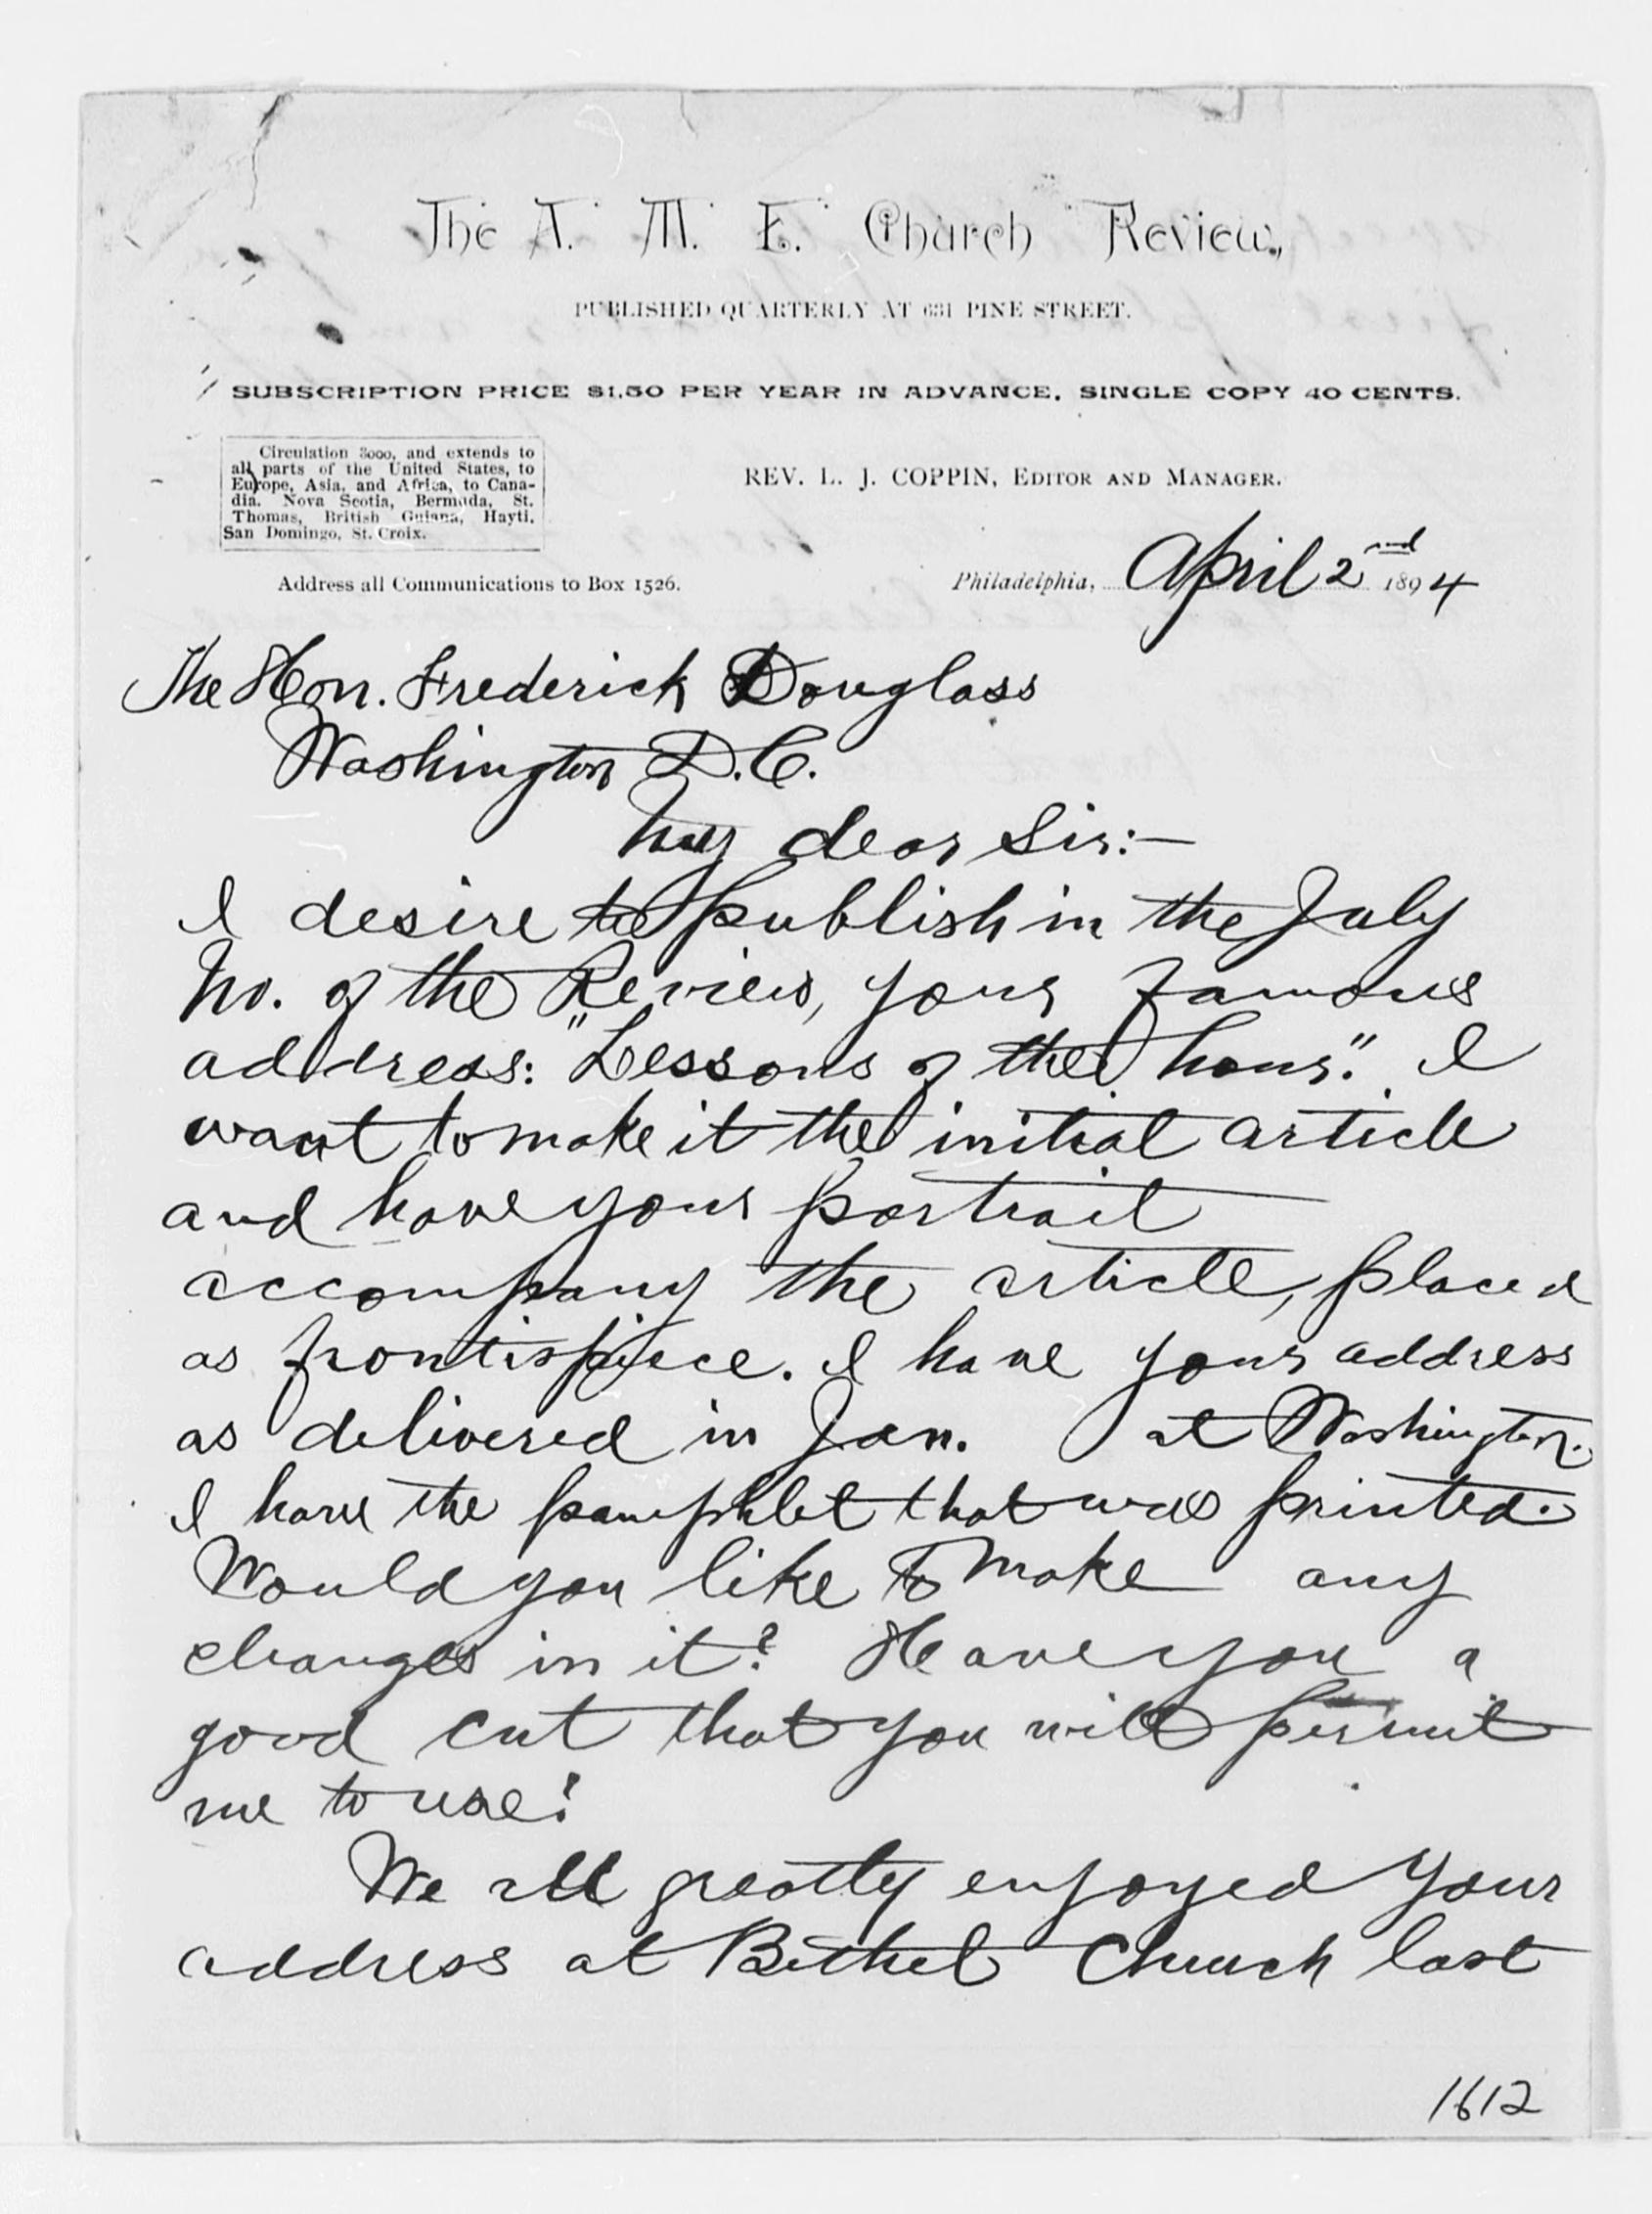 The A. M. E. Church Review,
PUBLISHED QUARTERLY AT 631 PINE STREET.
SUBSCRIPTION PRICE $1.50 PER YEAR IN ADVANCE. SINGLE COPY 40 CENTS.
Circulation 3000, and extends to
all parts of the United States, to
Europe, Asia, and Africa, to Cana-
dia. Nova Scotia, Bermuda, St.
Thomas, British Guiana, Hayti,
San Domingo, St. Croix.
REV. L. J. COPPIN, EDITOR AND MANAGER.
Address all Communications to Box 1526.
Philadelphia, April 2nd 1894
The Hon. Frederick Douglass
Washington D.C.
My dear Sir:—
I desire to publish in the July
No. of the Review, your famous
address: "Lessons of the hour." I
want to make it the initial article
and have your portrait
accompany the article, placed
as frontispiece. I have your address
as delivered in Jan. at Washington.
I have the pamphlet that was printed.
Would you like to make any
changes in it? Have you a
good cut that you will permit
me to use?
We all greatly enjoyed your
address at Bethel Church last
1612